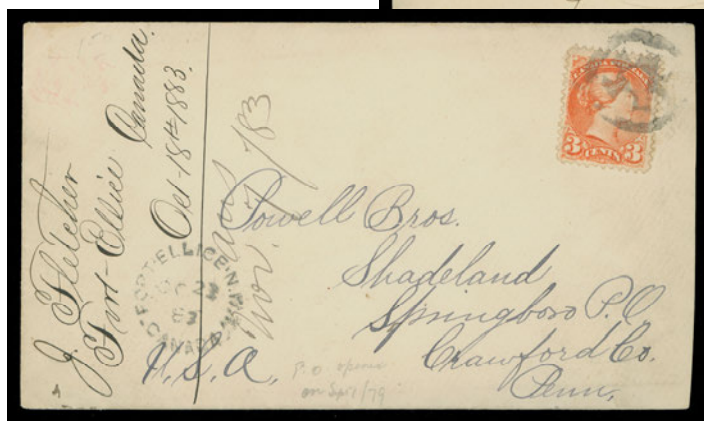 J. Fletcher
Fort-Ellice Canada
Oct-18th-1883.
Nov. /83
CANADA POSTAGE
3 CENTS 3
FORT-ELLICE-N.W.T
OC 23
83
CANADA
Powell Bros.
Shadeland
Springboro P.O
Crawford Co.
Penn,
U.S.A.
P.O opened